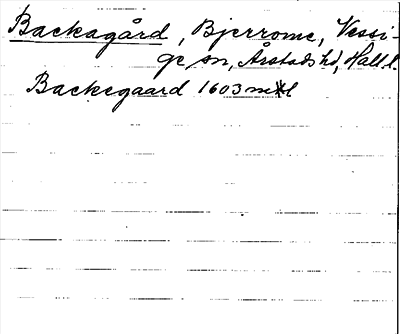 Backagård, Bjerrome, Vessi-
ge sn, Årstads hd, Hall l.
Backegaard 1603 mtl